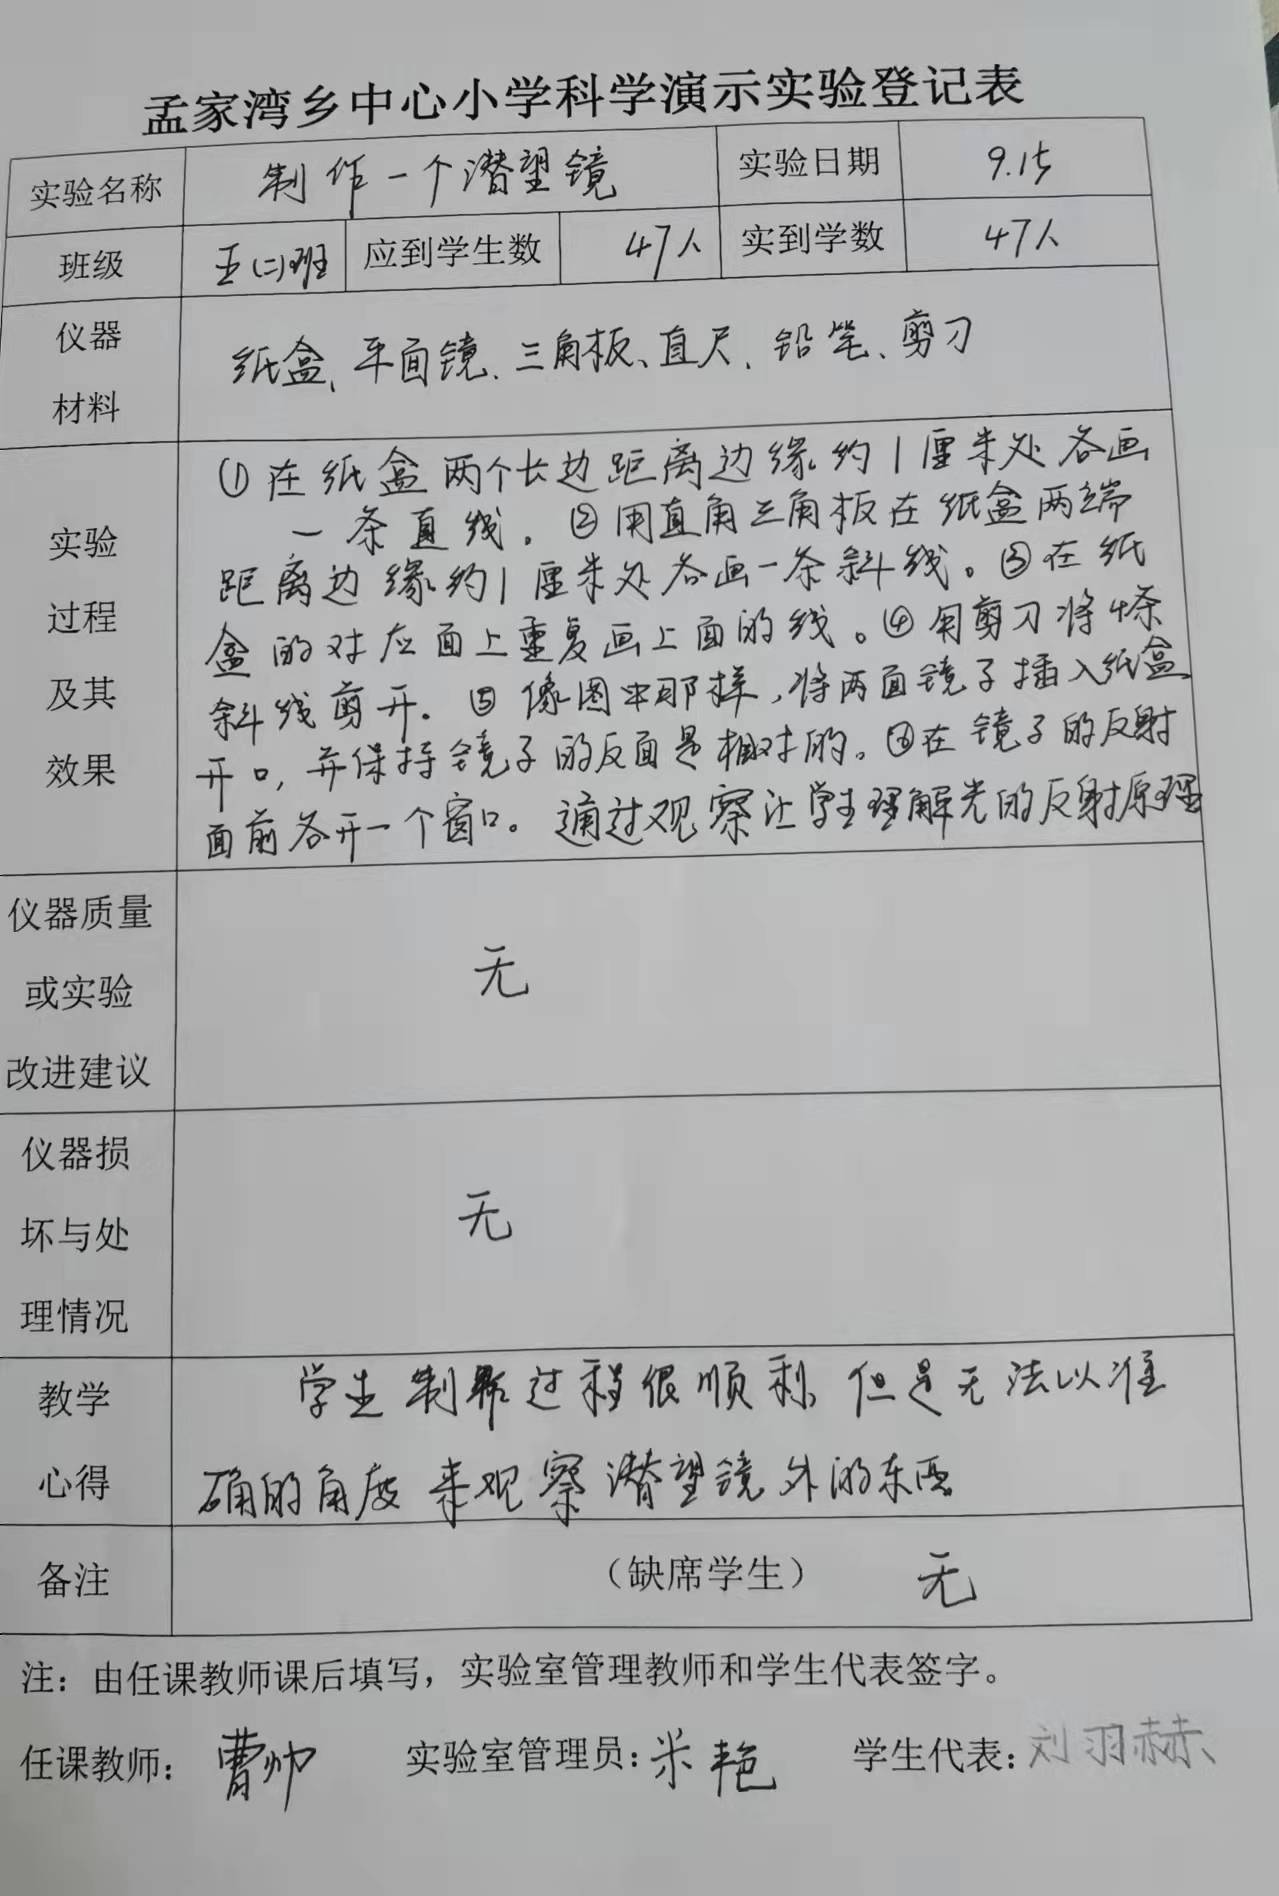 孟家湾乡中心小学科学演示实验登记表
实验名称 制作一个潜望镜 实验日期 9.15
班级 五(二)班 应到学生数 47人 实到学数 47人
仪器
材料
纸盒、平面镜、三角板、直尺、铅笔、剪刀
实验
过程
及其
效果
①在纸盒两个长边距离边缘约1厘米处各画
一条直线。②用直角三角板在纸盒两端
距离边缘约1厘米处各画一条斜线。③在纸
盒的对应面上重复画上面的线。④用剪刀将4条
斜线剪开。⑤像图中那样,将两面镜子插入纸盒
开口,并保持镜子的反面是相对的。⑥在镜子的反射
面前各开一个窗口。通过观察让学生理解光的反射原理
仪器质量
或实验
改进建议
无
仪器损
坏与处
理情况
无
教学
心得
学生制作过程很顺利,但是无法以准
确的角度来观察潜望镜外的东西
备注 (缺席学生) 无
注:由任课教师课后填写,实验室管理教师和学生代表签字。
任课教师:曹帅 实验室管理员:米艳 学生代表:刘羽赫